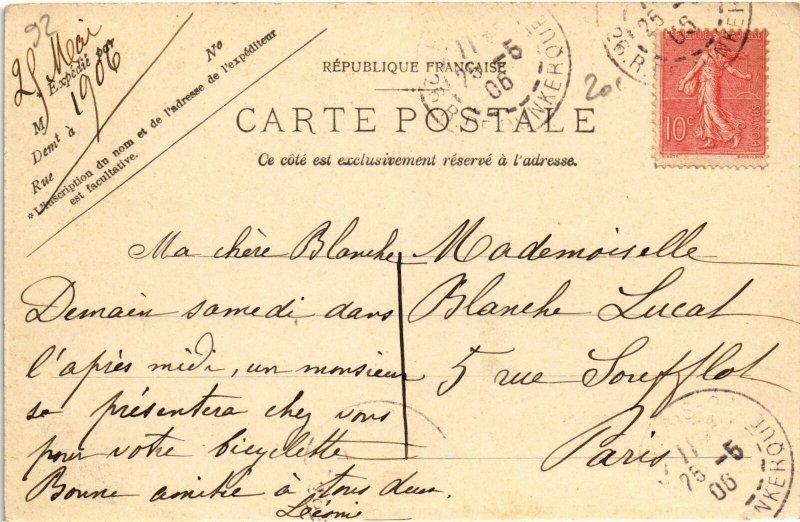 92
25 Mai
1906
* Expédié par
M
Nº
Demt à
Rue
* L'inscription du nom et de l'adresse de l'expéditeur
est facultative.
RÉPUBLIQUE FRANÇAISE
CARTE POSTALE
Ce côté est exclusivement réservé à l'adresse.
11
25 -5
06
DUNKERQUE
25
06
10c
POSTES
Ma chère Blanche
Demain samedi dans
l'après midi, un monsieur
se présentera chez vous
pour votre bicyclette
Bonne amitié à tous deux.
Léonie
Mademoiselle
Blanche Lucat
5 rue Soufflot
Paris
11
25 -5
06
NKERQUE